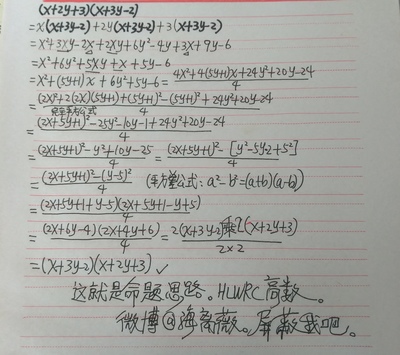 (x+2y+3)(x+3y-2)
=x(x+3y-2)+2y(x+3y-2)+3(x+3y-2)
=x²+3xy-2x+2xy+6y²-4y+3x+9y-6
=x²+6y²+5xy+x+5y-6
=x²+(5y+1)x+6y²+5y-6=\frac{4x²+4(5y+1)x+24y²+20y-24}{4}
=\frac{(2x)²+2(2x)(5y+1)+(5y+1)²-(5y+1)²+24y²+20y-24}{4}
完全平方公式
=\frac{(2x+5y+1)²-25y²-10y-1+24y²+20y-24}{4}
=\frac{(2x+5y+1)²-y²+10y-25}{4}=\frac{(2x+5y+1)²-[y²-5y·2+5²]}{4}
=\frac{(2x+5y+1)²-(y-5)²}{4} (平方差公式：a²-b²=(a+b)(a-b))
=\frac{(2x+5y+1+y-5)(2x+5y+1-y+5)}{4}
=\frac{(2x+6y-4)(2x+4y+6)}{4}=\frac{2(x+3y-2)乘2(x+2y+3)}{2×2}
=(x+3y-2)(x+2y+3)✓
这就是命题思路。HLWRC高数。
微博@海离薇。屏蔽我吧。